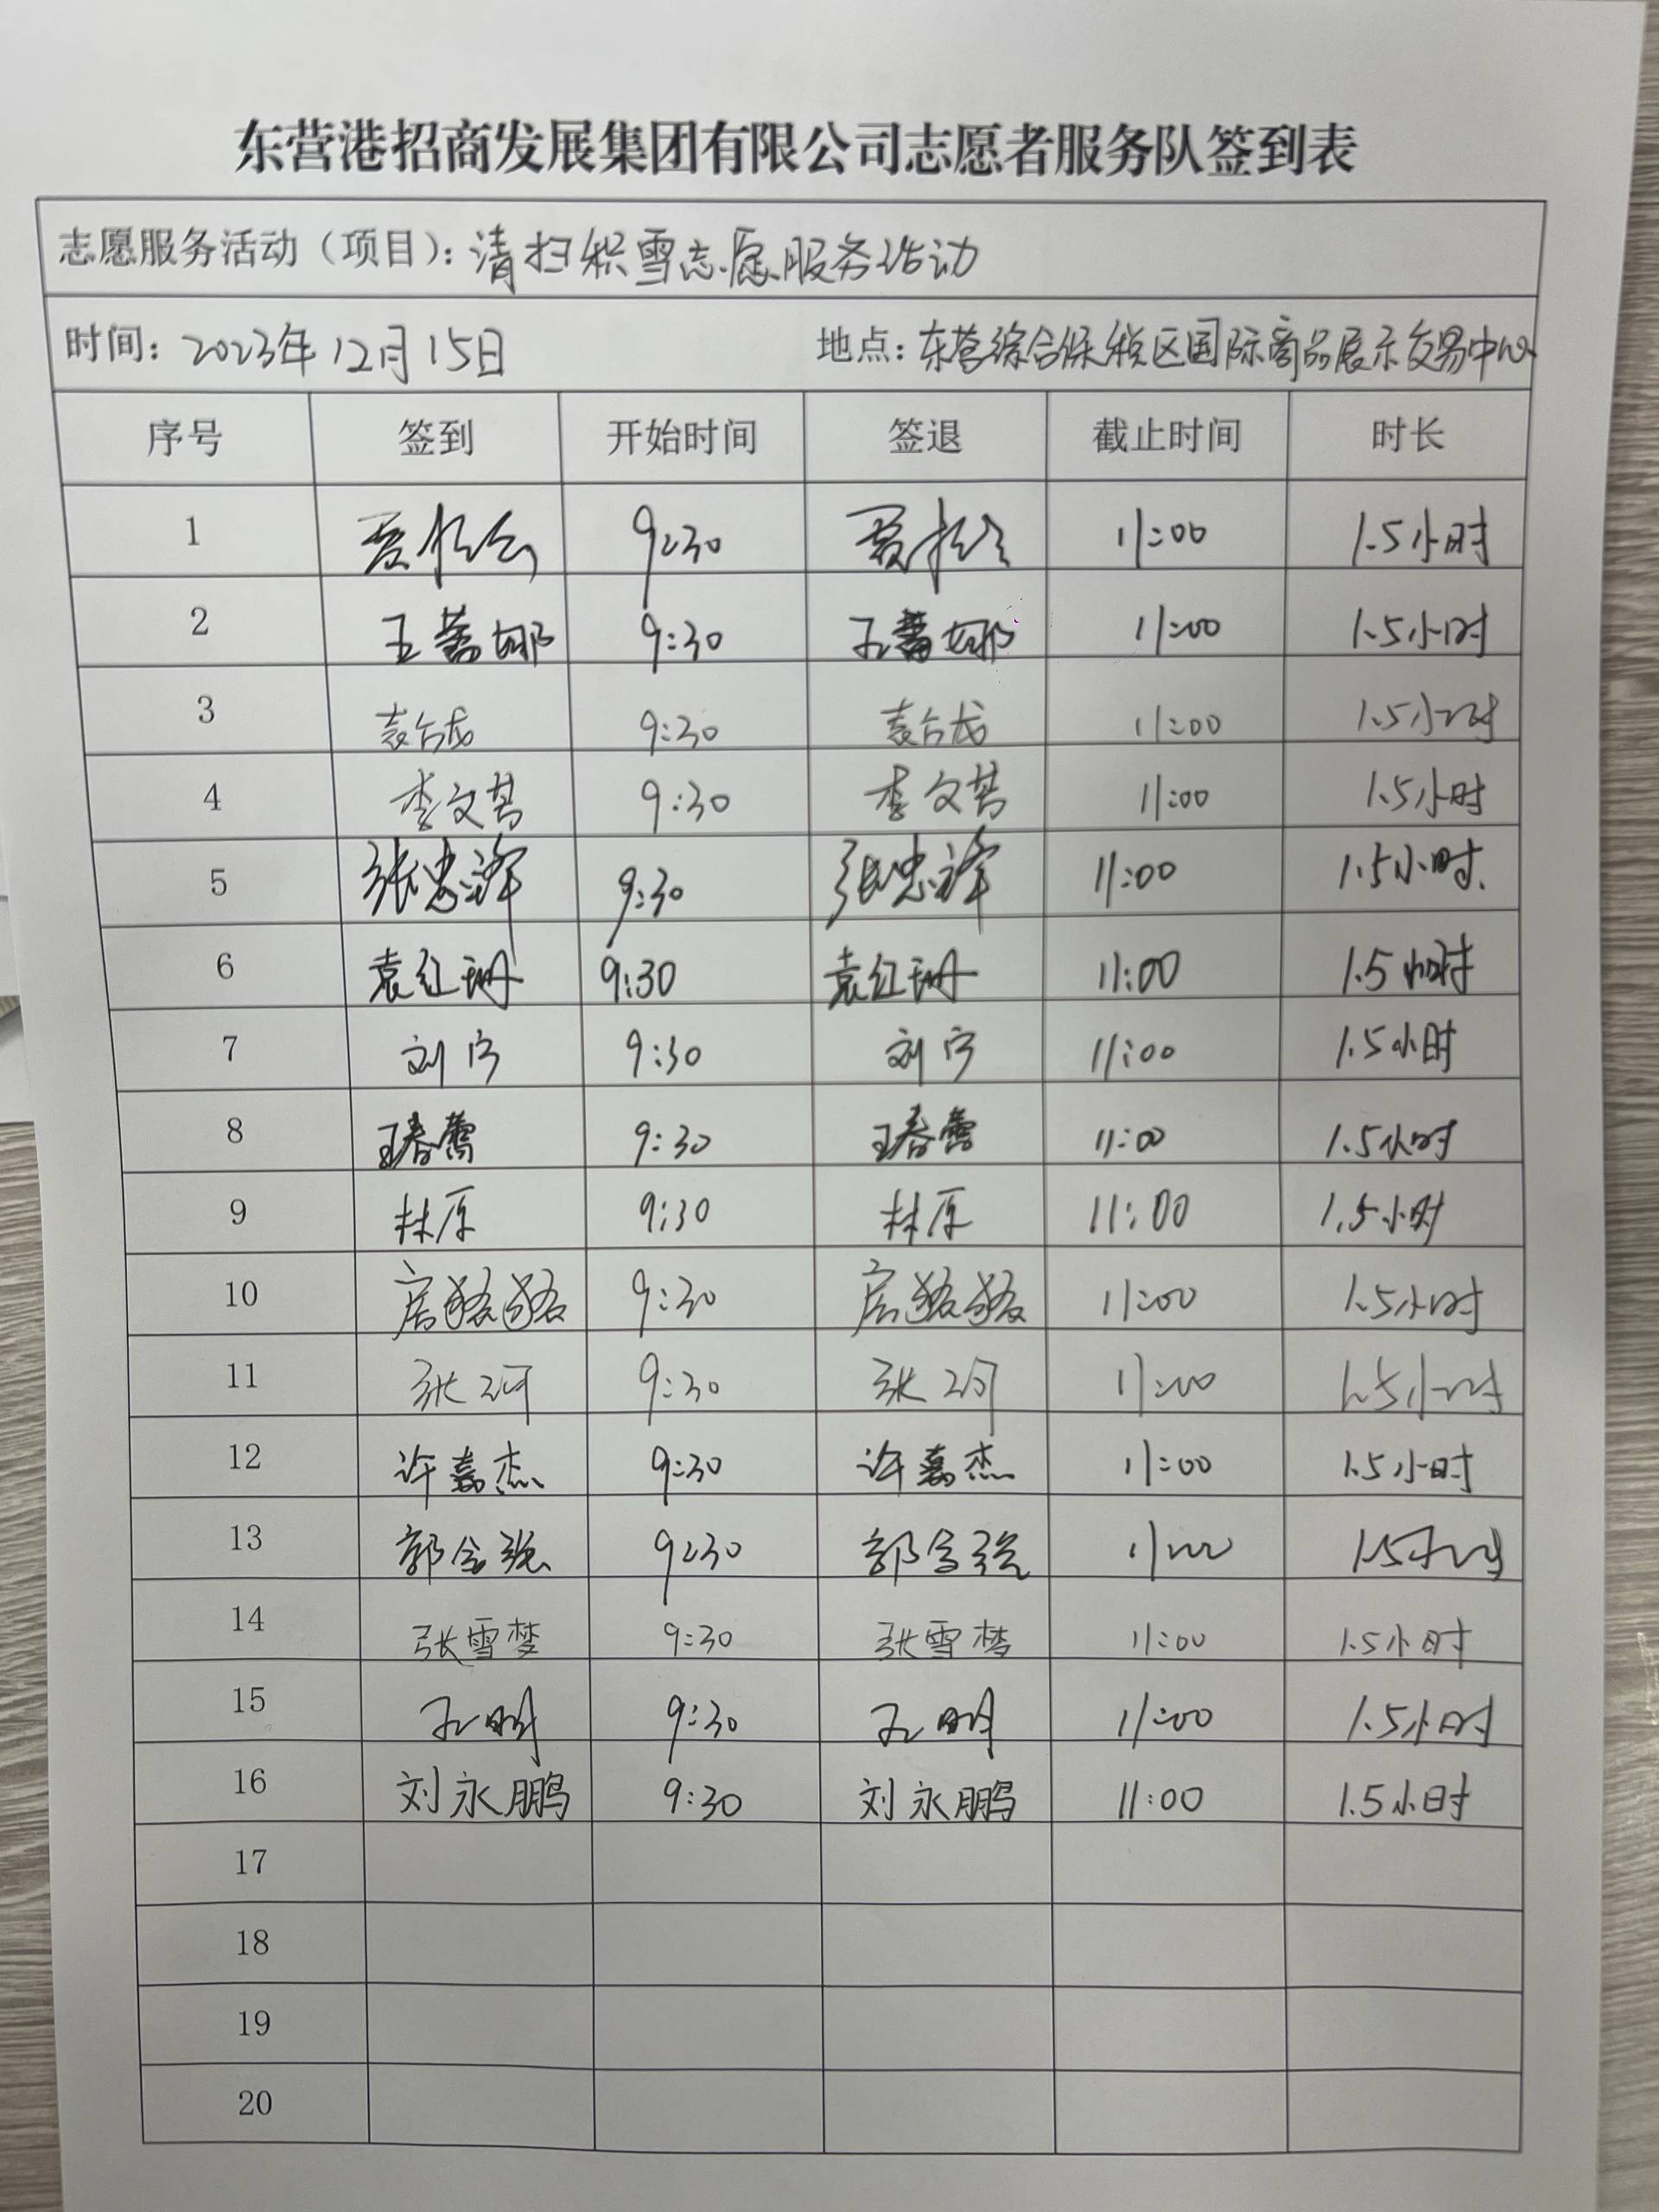 东营港招商发展集团有限公司志愿者服务队签到表
志愿服务活动（项目）：清扫积雪志愿服务活动
时间：2023年12月15日 地点：东营综合保税区国际商品展示交易中心
序号 签到 开始时间 签退 截止时间 时长
1 9:30 11:00 1.5小时
2 王蕾娜 9:30 王蕾娜 11:00 1.5小时
3 9:30 11:00 1.5小时
4 李文 9:30 李文 11:00 1.5小时
5 张忠 9:30 张忠 11:00 1.5小时
6 袁红珊 9:30 袁红珊 11:00 1.5小时
7 刘宁 9:30 刘宁 11:00 1.5小时
8 王春蕾 9:30 王春蕾 11:00 1.5小时
9 林原 9:30 林原 11:00 1.5小时
10 房璐璐 9:30 房璐璐 11:00 1.5小时
11 张珂 9:30 张珂 11:00 1.5小时
12 许嘉杰 9:30 许嘉杰 11:00 1.5小时
13 郭金强 9:30 郭金强 11:00 1.5小时
14 张雪梦 9:30 张雪梦 11:00 1.5小时
15 9:30 11:00 1.5小时
16 刘永鹏 9:30 刘永鹏 11:00 1.5小时
17
18
19
20